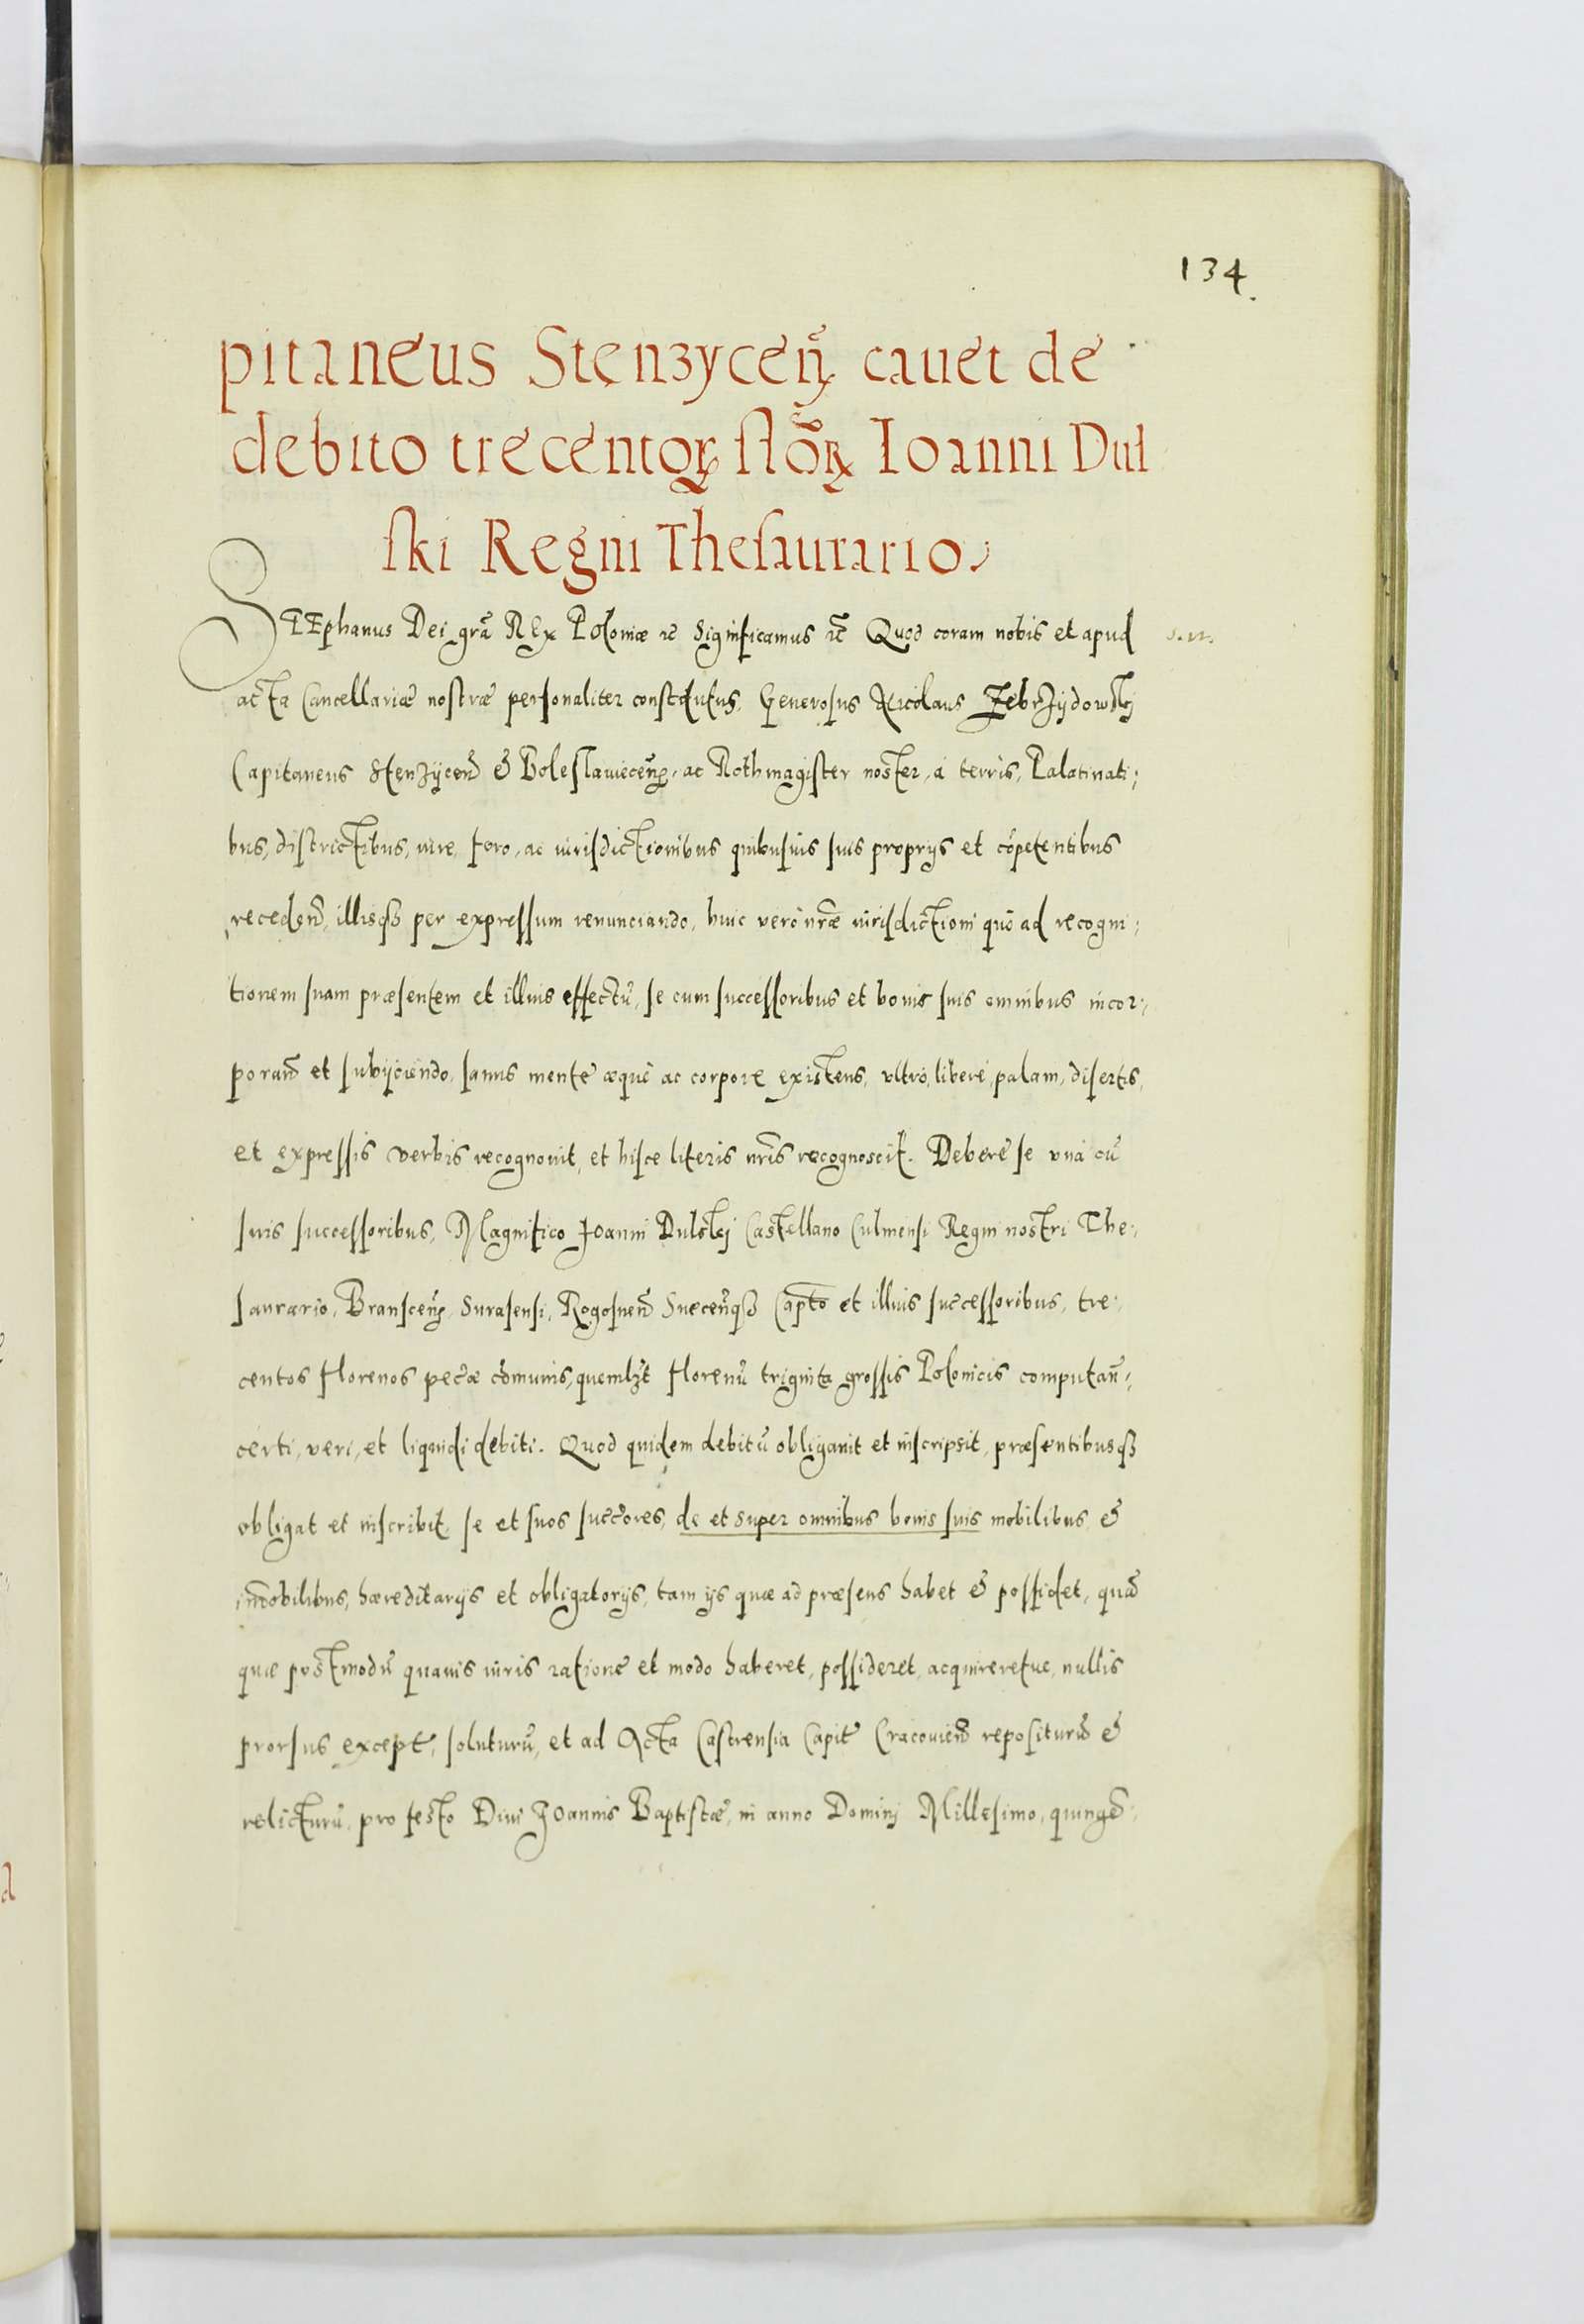 134.
pitaneus Stenzyceñ cauet de
debito trecentoꝝ flõꝝ Ioanni Dul
ſki Regni Theſaurario.
STEphanus Dei grã REx Poloniæ &c̃ Significamus &c̃ Quod coram nobis et apud
acta Cancellariæ nostræ perſonaliter constitutus, Generoſus Nicolaus Zebrzÿdowſkj
Capitaneus Stenzÿceñ & Boleſlauieceñ, ac Rothmagiſter noster, a terris, Palatinati:
bus, diſtrictibus, iure, foro, ac iuriſdictionibus quibuſuis ſuis proprijs et cõpetentibus
recedeñ, illisqꝫ per expreſſum renunciando, huic verò nr̃æ iuriſdictioni quò ad recogni:
tionem ſuam præſentem et illius effectũ, ſe cum ſucceſſoribus et bonis ſuis omnibus incor:
porañ et ſubijciendo, ſanus mente æquè ac corpore exiſtens, vltrò, liberè, palam, diſertis,
et expreſſis verbis recognouit, et hiſce literis nr̃is recognoscit. Debere ſe vnà cũ
ſuis ſucceſſoribus, Magnifico Joanni Dulſkj Castellano Culmenſi Regni nostri The:
ſaurario, Branſceñ, Suraſenſi, Rogoſneñ Sueceñqꝫ Capto et illius ſucceſſoribus, tre:
centos florenos pec̃æ cõmunis, quemlꝫt florenũ triginta groſſis Polonicis computañ:
certi, veri, et liquidi debiti. Quod quidem debitũ obligauit et inſcripsit, præſentibusqꝫ
obligat et inſcribit ſe et ſuos ſucc̃ores, de et super omnibus bonis ſuis mobilibus &
im̃obilibus, hæreditarijs et obligatorijs, tam ijs quæ ad præſens habet & poſſidet, quã
quæ poſtmodũ quauis iuris ratione et modo haberet, poſſideret, acquireretue, nullis
prorſus except̃, ſoluturũ, et ad Acta Caſtrenſia Capit̃ Cracouieñ repoſiturũ &
relicturũ, pro feſto Diui Joannis Baptiſtæ, in anno Dominj Milleſimo, quingẽ: